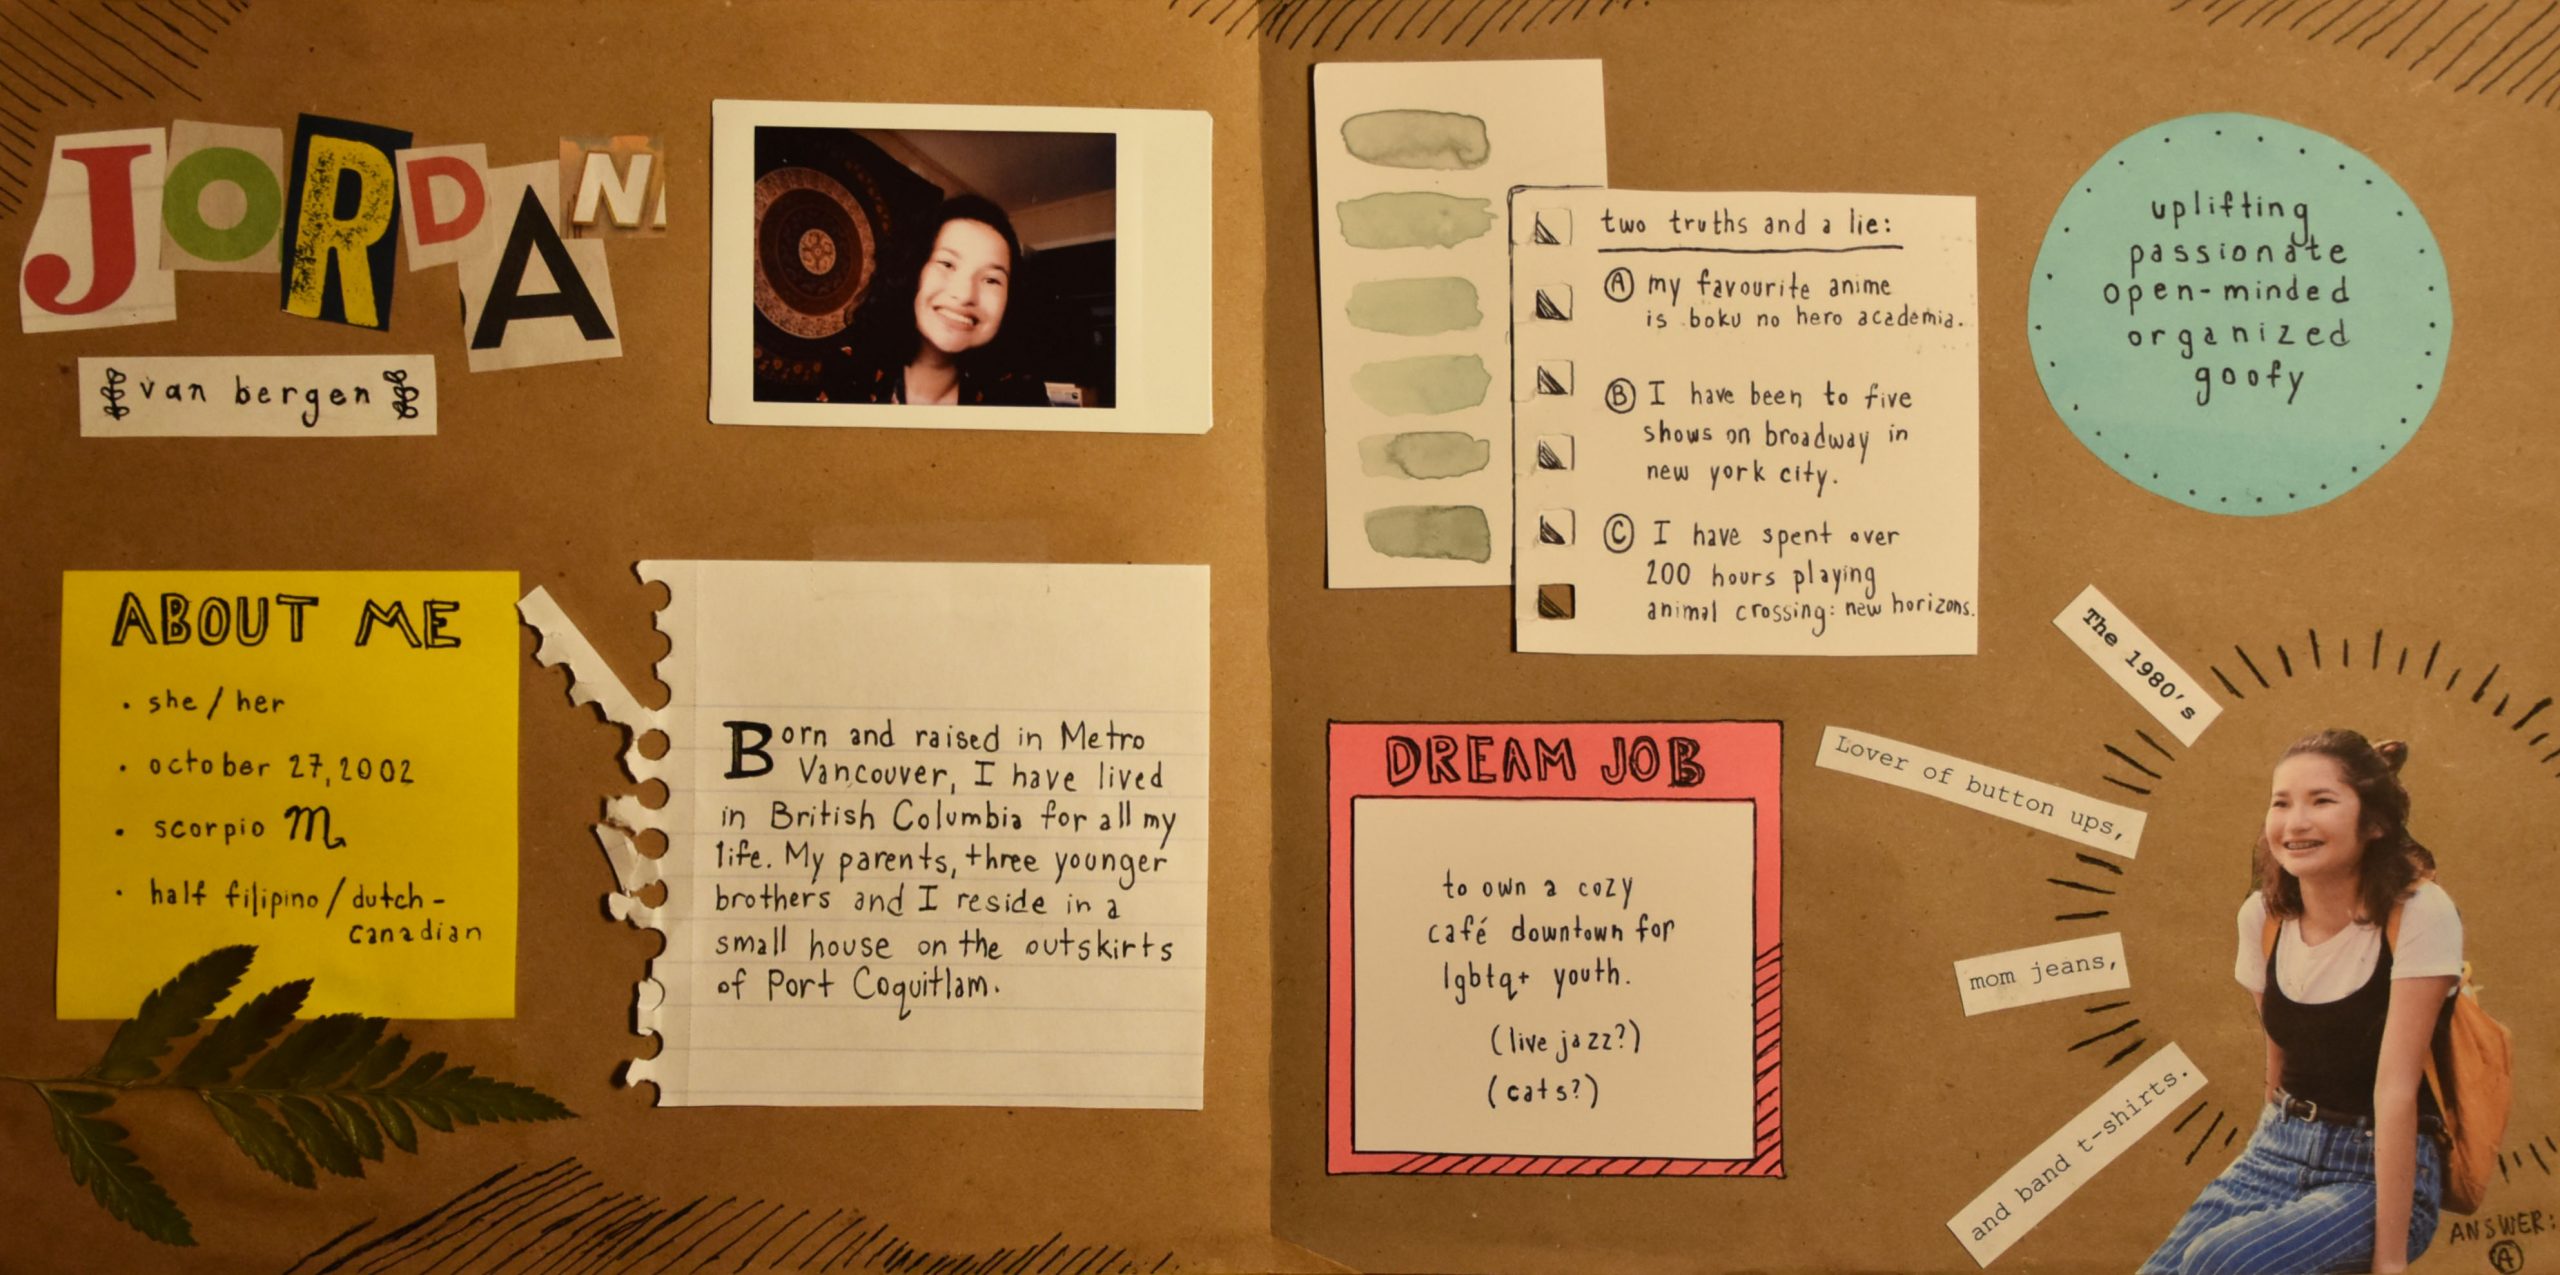 JORDAN
van bergen
ABOUT ME
• she / her
• october 27, 2002
• scorpio ♏
• half filipino / dutch-
canadian
Born and raised in Metro
Vancouver, I have lived
in British Columbia for all my
life. My parents, three younger
brothers and I reside in a
small house on the outskirts
of Port Coquitlam.
two truths and a lie:
Ⓐ my favourite anime
is boku no hero academia.
Ⓑ I have been to five
shows on broadway in
new york city.
Ⓒ I have spent over
200 hours playing
animal crossing: new horizons.
uplifting
passionate
open-minded
organized
goofy
DREAM JOB
to own a cozy
café downtown for
lgbtq+ youth.
(live jazz?)
(cats?)
The 1980's
Lover of button ups,
mom jeans,
and band t-shirts.
ANSWER:
Ⓐ